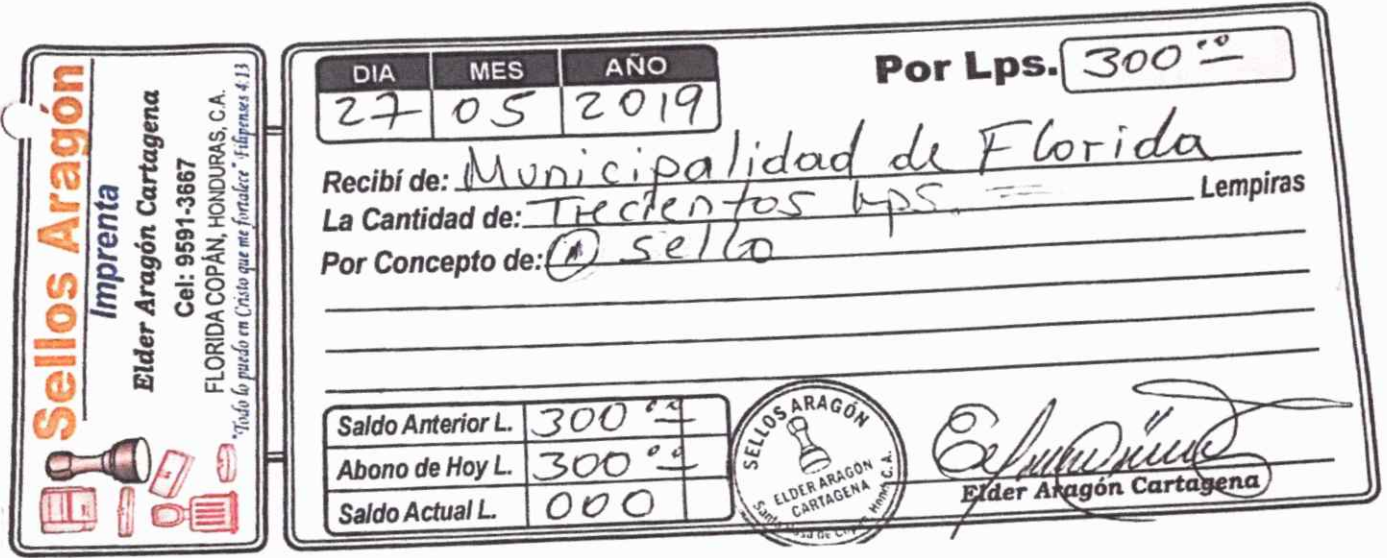 Sellos Aragón
Imprenta
Elder Aragón Cartagena
Cel: 9591-3667
FLORIDA COPÁN, HONDURAS, C.A.
"Todo lo puedo en Cristo que me fortalece" Filipenses 4:13
DIA MES AÑO
27 05 2019
Por Lps. 300.00
Recibí de: Municipalidad de Florida
La Cantidad de: Trecientos Lps. Lempiras
Por Concepto de: (1) sello
Saldo Anterior L. 300.00
Abono de Hoy L. 300.00
Saldo Actual L. 000
SELLOS ARAGÓN
ELDER ARAGÓN
CARTAGENA
Santa Rosa de Copán, Hond. C.A.
Elder Aragón Cartagena